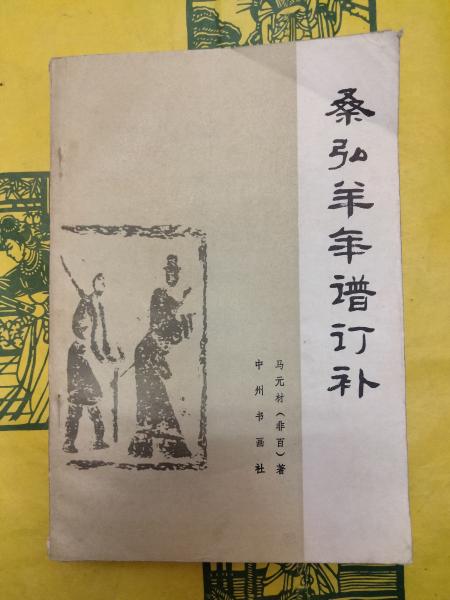 桑弘羊年谱订补
马元材（非百）著
中州书画社